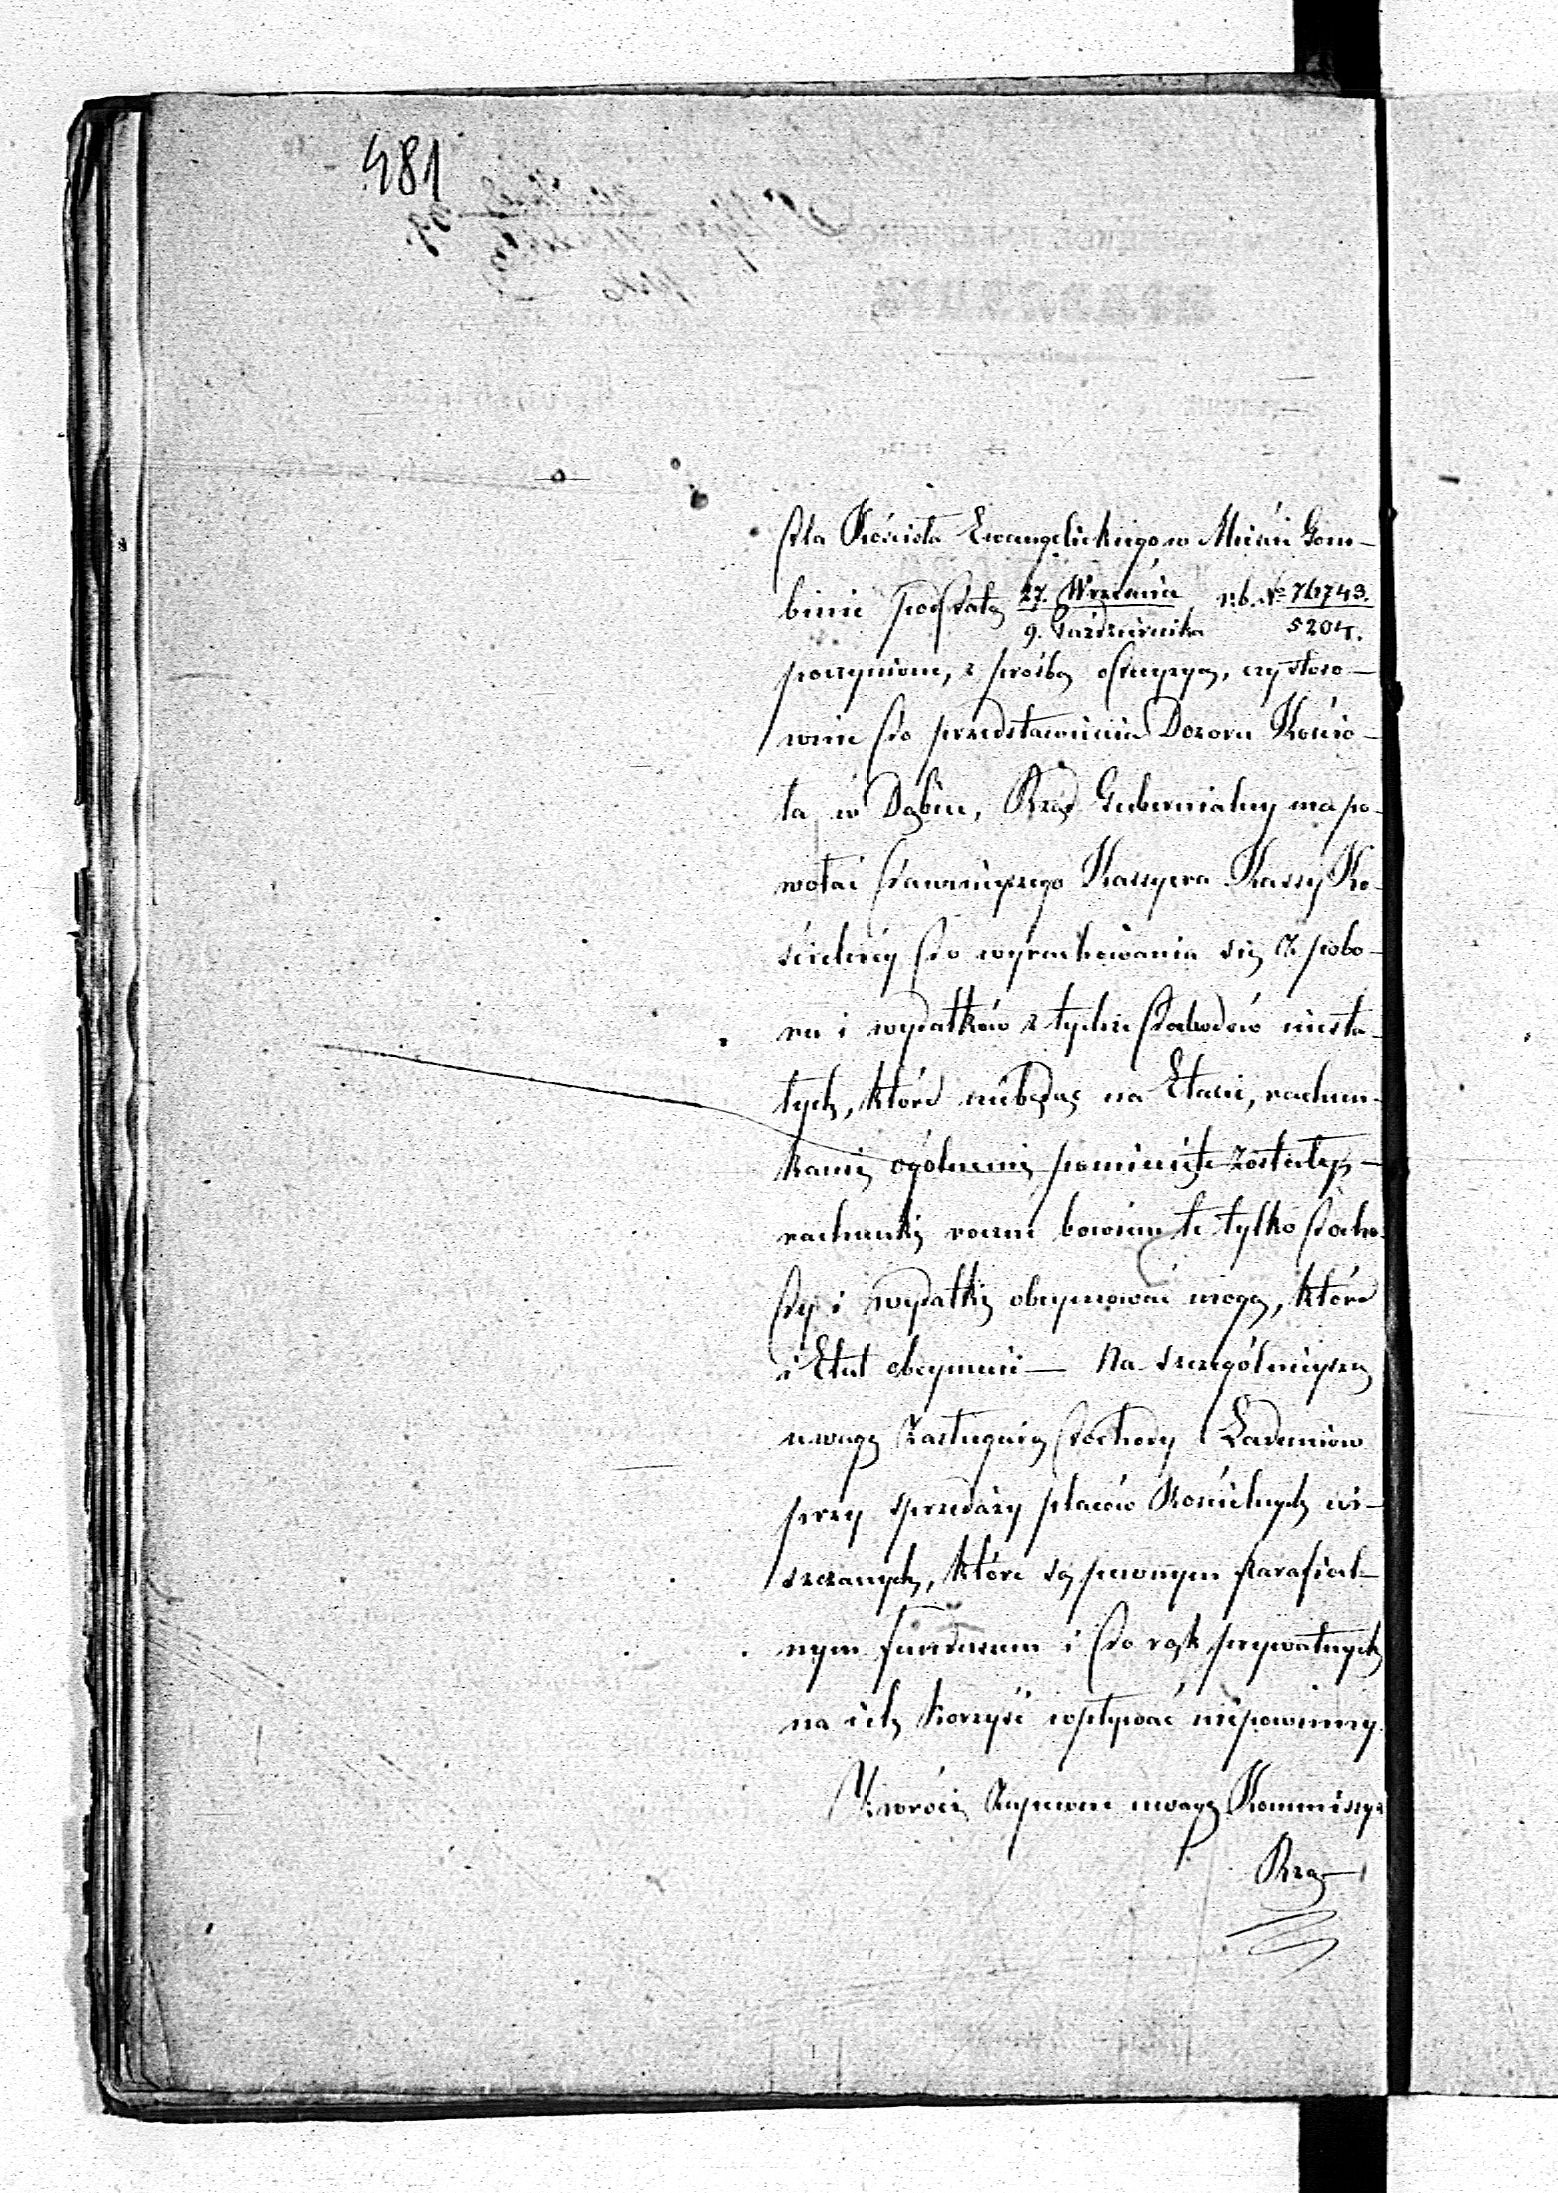 481
dla Kościoła Ewangelickiego w Mieście Gom-
binie pod datą 27. Września / 9. Października r.b. № 76743. / 5204.
poczynione, z prośbą ofrecyzyą, czy stoso-
wnie do przedstawienia Dozoru Kościo-
ła w Dąbiu, Rząd Gubernialny ma po-
wołać dawnieyszego Kassyera Kassy Ko-
ścielnéy do wyrachowania się z pobo-
ru i wydatków z tychże dochodów niesta-
łych, które niebędąc na Etacie, rachun-
kami ogólnemi pominięte zostały,
rachunki roczne bowiem te tylko docho-
dy i wydatki obeymować mogą, które
i Etat obeymuie — Na szczególnieyszą
uwagę zasługuią dochody Laudemiów
przy sprzedaży placów Kościelnych ui-
szczanych, które są pewnym parafial-
nym funduszem i do rąk prywatnych
na ich korzyść wpływać niepowinny.
Zwróci zapewne uwagę Kommissya
Rzą-